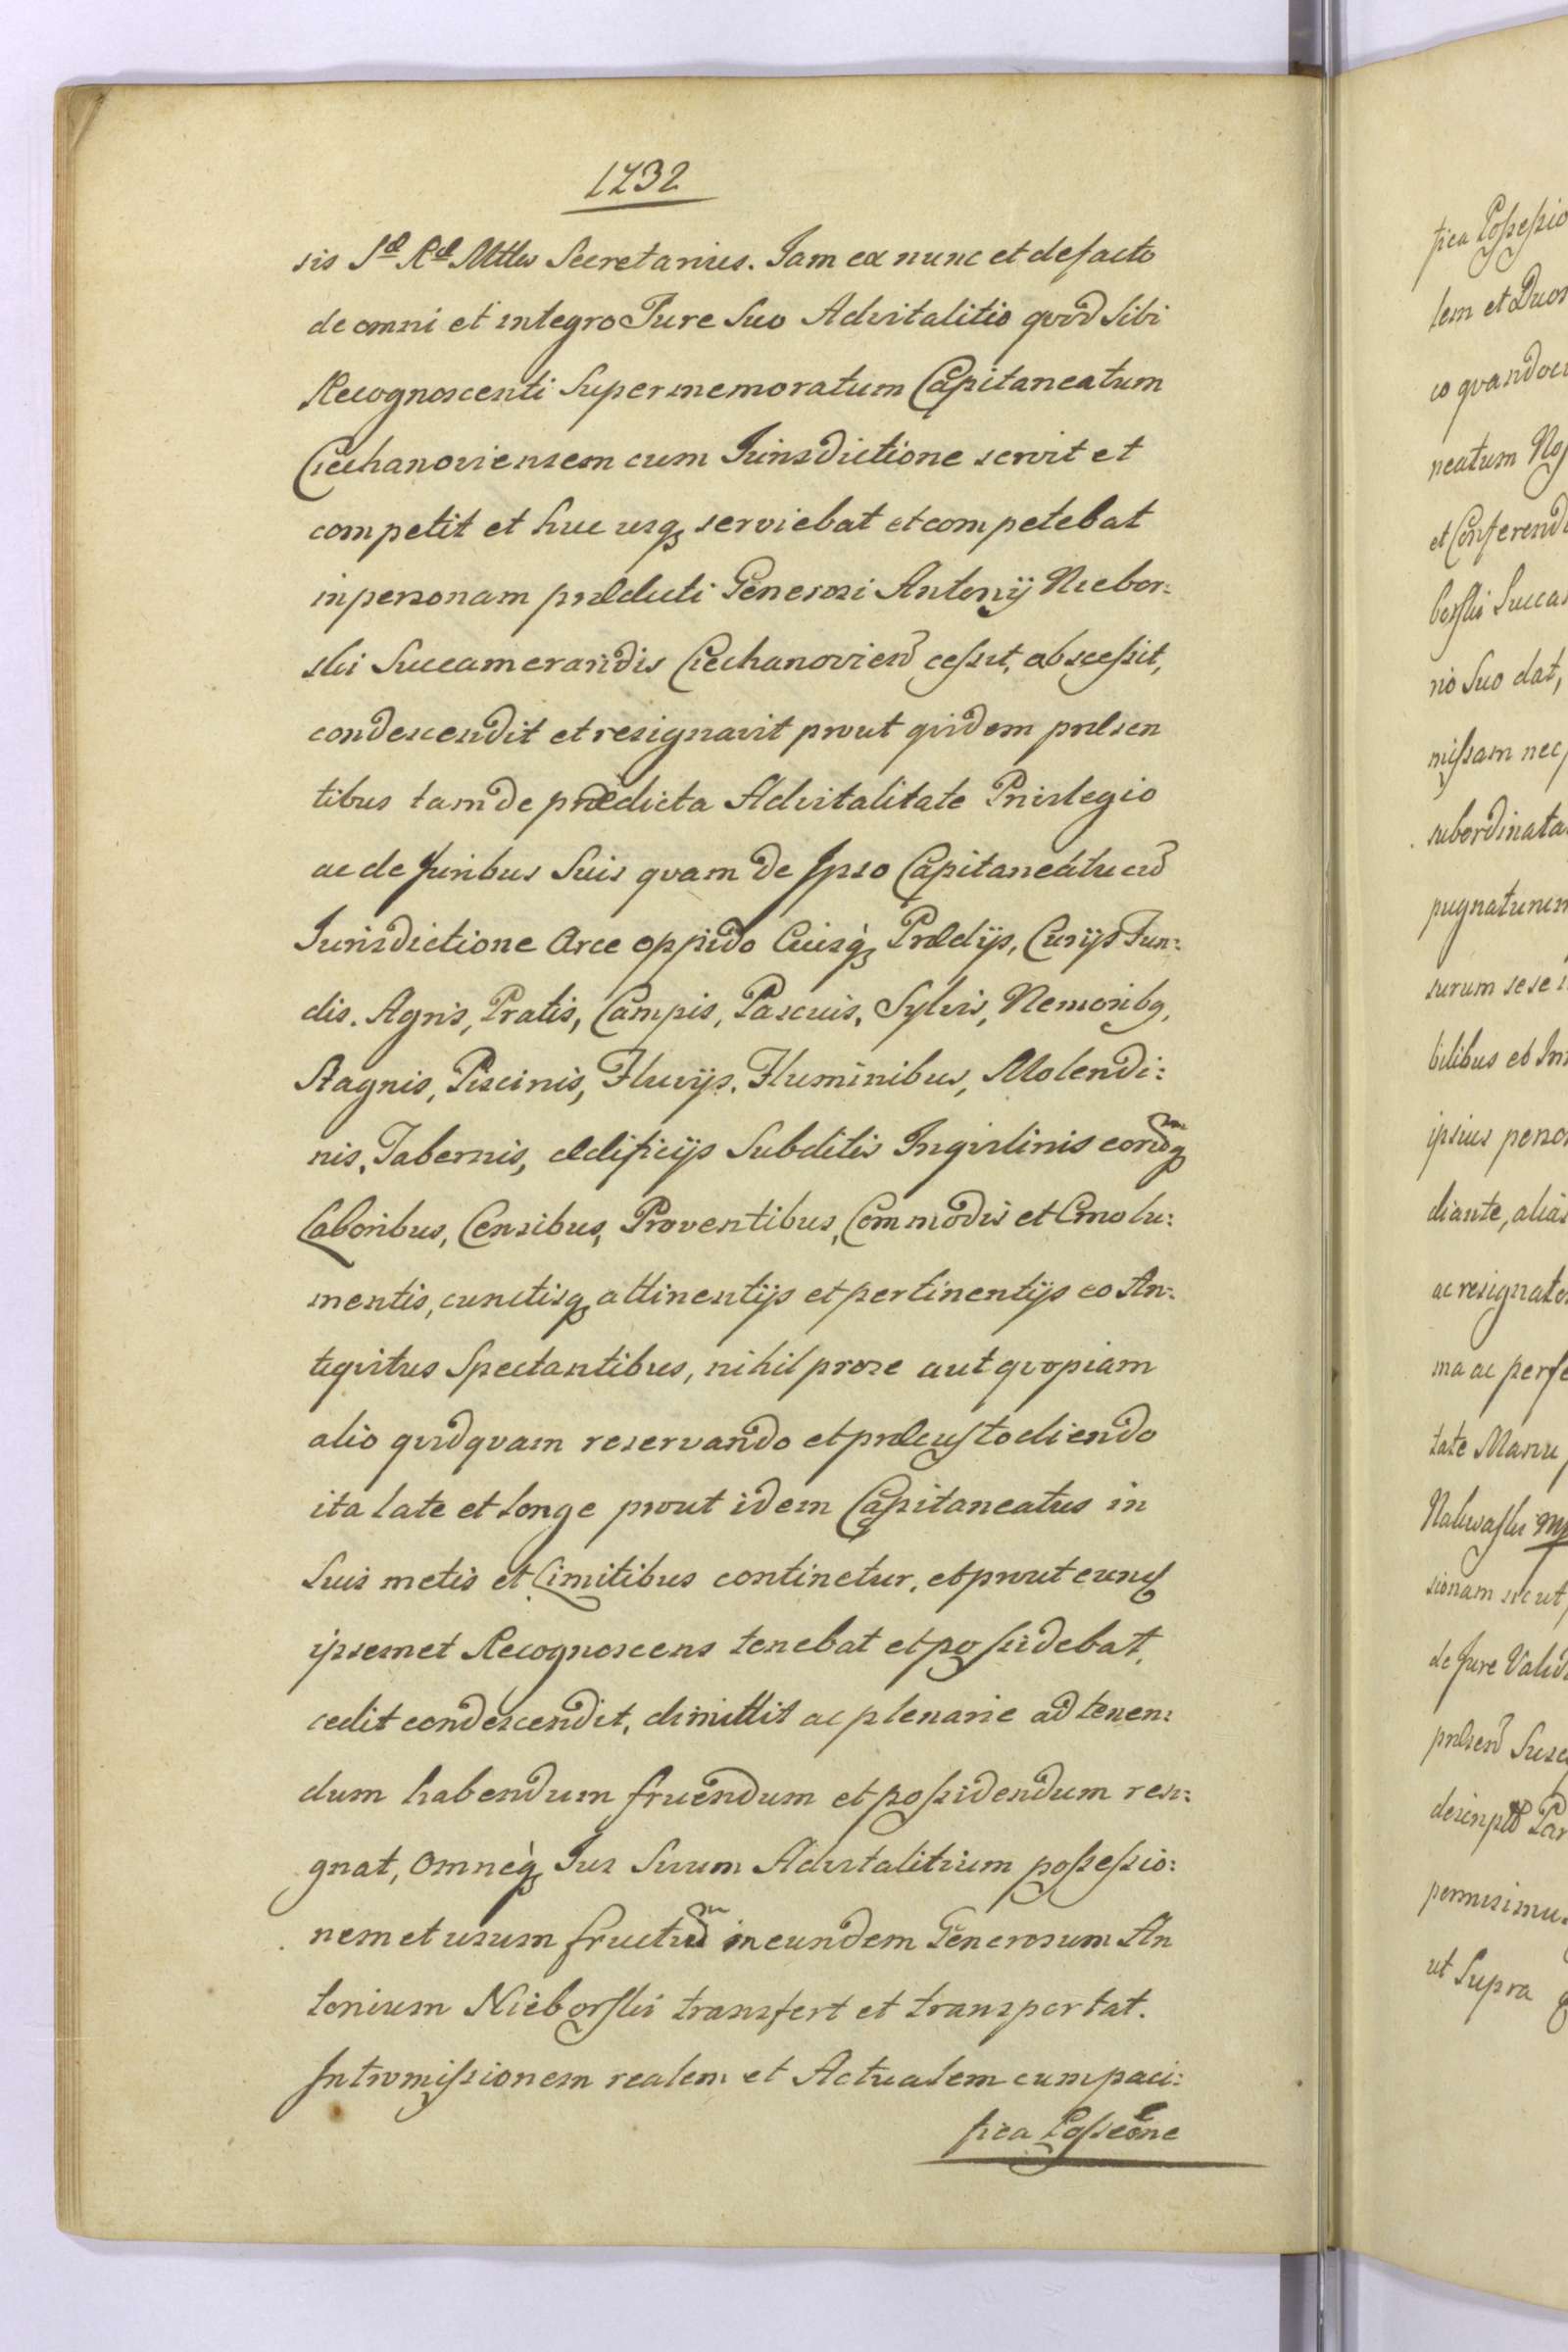 1732
sis Sæ Ræ Mttis Secretarius. Iam ex nunc et defacto
de omni et integro Iure Suo Advitalitio qvod Sibi
Recognoscenti Super memoratum Capitaneatum
Ciechanoviensem cum Iurisdictione servit et
competit et huc usq serviebat et competebat
in personam prædicti Generosi Antonij Niebor:
ski Succamerandis Ciechanovien cessit, abscessit,
condescendit et resignavit prout qvidem præsen
tibus tam de prædicta Advitalitate Privilegio
ac de Juribus Suis qvam de Ipso Capitaneatu cum
Iurisdictione Arce oppido Cuisq Prædijs, Curijs Fun:
dis. Agris, Pratis, Campis, Pascuis, Sylvis, Nemoribq,
Stagnis, Piscinis, Fluvijs, Fluminibus, Molendi:
nis, Tabernis, ædificijs Subditis Inqvilinis eorumq
Laboribus, Censibus, Proventibus, Commodis et Emolu:
mentis, cunctisq attinentijs et pertinentijs eo An:
tiqvitus Spectantibus, nihil pro se aut qvopiam
alio qvidqvam reservando et præcustodiendo
ita late et longe prout idem Capitaneatus in
Suis metis et Limitibus continetur, et prout eund
ipsemet Recognoscens tenebat et possidebat,
cedit condescendit, dimittit ac plenarie ad tenen:
dum habendum fruendum et possidendum resi:
gnat, Omneq Ius Suum Advitalitium possessio:
nem et usum fructum in eundem Generosum An
tonium Nieborski transfert et transportat.
Intromissionem realem et Actualem cum paci:
fica Posseone
fica Possessio
lem et Duor
co qvandocu
neatum No
et Conferend
borski Succa
rio Suo dat,
missam nec
subordinata
pugnaturum
surum sese
bilibus et In
ipsius perso
diante, alias
ac resignato
ma ac perfe
tate Manu
Nakwaski mp
sionam sicut
de Jure Valid
præsen Susc
descripto Par
permisimus
ut Supra